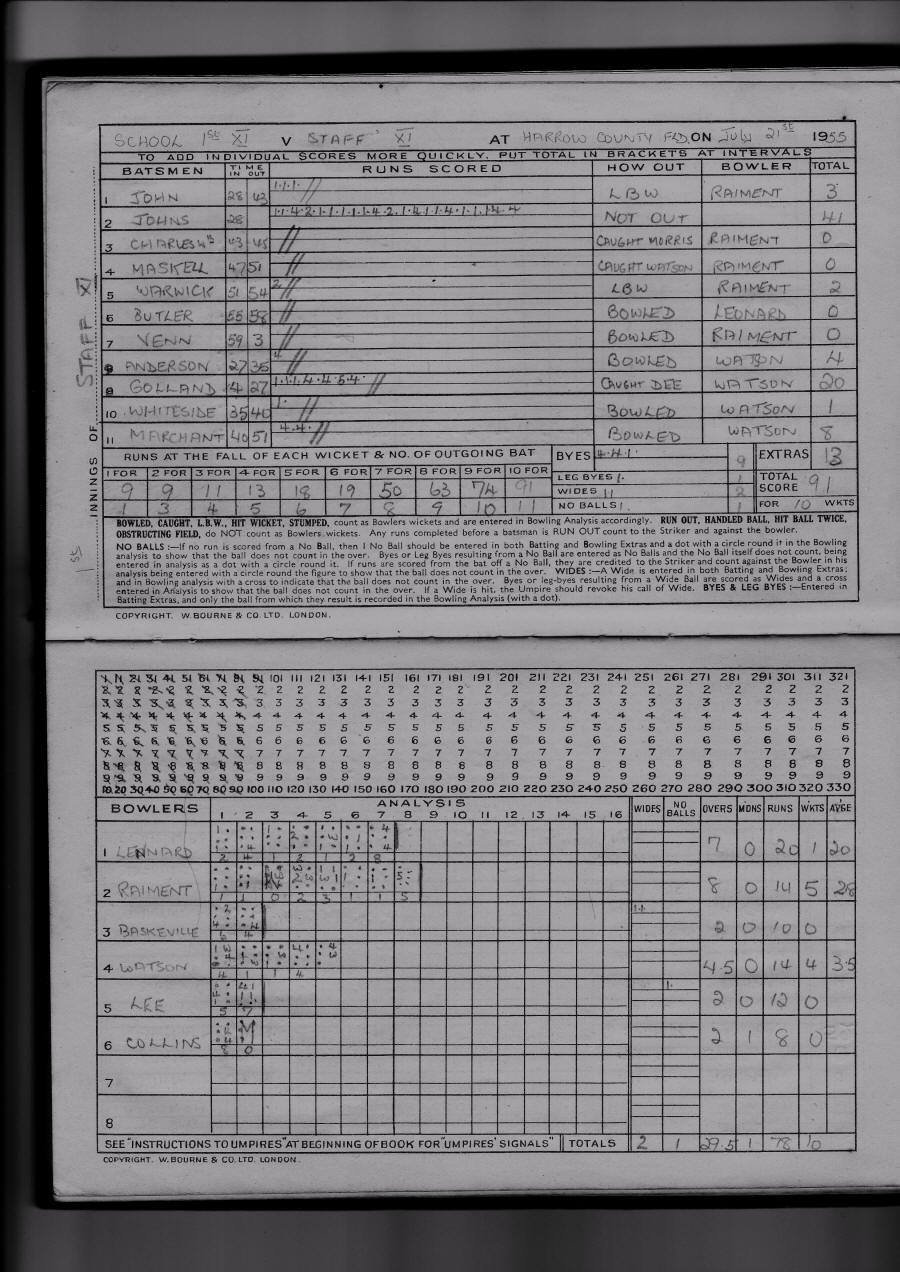 SCHOOL 1st XI V STAFF XI AT HARROW COUNTY FLD. ON July 21st 1955
TO ADD INDIVIDUAL SCORES MORE QUICKLY, PUT TOTAL IN BRACKETS AT INTERVALS
BATSMEN TIME IN OUT RUNS SCORED HOW OUT BOWLER TOTAL
1 JOHN 28 43 1.1.1. // LBW RAIMENT 3
2 JOHNS 28 NOT OUT 41
3 CHARLESWth 43 45 // CAUGHT MORRIS RAIMENT 0
4 MASKELL 47 51 // CAUGHT WATSON RAIMENT 0
5 WARWICK 51 54 2 // LBW RAIMENT 2
6 BUTLER 55 58 // BOWLED LEONARD 0
7 VENN 59 3 // BOWLED RAIMENT 0
9 ANDERSON 27 35 4 // BOWLED WATSON 4
8 GOLLAND 4 27 1.1.1.4.4.5.4. // CAUGHT DEE WATSON 20
10 WHITESIDE 35 40 1. // BOWLED WATSON 1
11 MARCHANT 40 51 4.4. // BOWLED WATSON 8
INNINGS OF STAFF XI
1st
RUNS AT THE FALL OF EACH WICKET & NO. OF OUTGOING BAT
1 FOR 2 FOR 3 FOR 4 FOR 5 FOR 6 FOR 7 FOR 8 FOR 9 FOR 10 FOR
9 9 11 13 18 19 50 63 74 91
1 3 4 5 6 7 8 9 10 11
BYES 4.4.1. 9 EXTRAS 13
LEG BYES 1. 1 TOTAL SCORE 91
WIDES 11 2
NO BALLS 1. 1 FOR 10 WKTS
BOWLED, CAUGHT, L.B.W., HIT WICKET, STUMPED, count as Bowlers wickets and are entered in Bowling Analysis accordingly. RUN OUT, HANDLED BALL, HIT BALL TWICE,
OBSTRUCTING FIELD, do NOT count as Bowlers wickets. Any runs completed before a batsman is RUN OUT count to the Striker and against the bowler.
NO BALLS :—If no run is scored from a No Ball, then 1 No Ball should be entered in both Batting and Bowling Extras and a dot with a circle round it in the Bowling
analysis to show that the ball does not count in the over. Byes or Leg Byes resulting from a No Ball are entered as No Balls and the No Ball itself does not count, being
entered in analysis as a dot with a circle round it. If runs are scored from the bat off a No Ball, they are credited to the Striker and count against the Bowler in his
analysis being entered with a circle round the figure to show that the ball does not count in the over. WIDES :—A Wide is entered in both Batting and Bowling Extras;
and in Bowling analysis with a cross to indicate that the ball does not count in the over. Byes or leg-byes resulting from a Wide Ball are scored as Wides and a cross
entered in Analysis to show that the ball does not count in the over. If a Wide is hit, the Umpire should revoke his call of Wide. BYES & LEG BYES :—Entered in
Batting Extras, and only the ball from which they result is recorded in the Bowling Analysis (with a dot).
COPYRIGHT. W. BOURNE & CO. LTD. LONDON.
1 11 21 31 41 51 61 71 81 91 101 111 121 131 141 151 161 171 181 191 201 211 221 231 241 251 261 271 281 291 301 311 321
2 2 2 2 2 2 2 2 2 2 2 2 2 2 2 2 2 2 2 2 2 2 2 2 2 2 2 2 2 2 2 2 2
3 3 3 3 3 3 3 3 3 3 3 3 3 3 3 3 3 3 3 3 3 3 3 3 3 3 3 3 3 3 3 3 3
4 4 4 4 4 4 4 4 4 4 4 4 4 4 4 4 4 4 4 4 4 4 4 4 4 4 4 4 4 4 4 4 4
5 5 5 5 5 5 5 5 5 5 5 5 5 5 5 5 5 5 5 5 5 5 5 5 5 5 5 5 5 5 5 5 5
6 6 6 6 6 6 6 6 6 6 6 6 6 6 6 6 6 6 6 6 6 6 6 6 6 6 6 6 6 6 6 6 6
7 7 7 7 7 7 7 7 7 7 7 7 7 7 7 7 7 7 7 7 7 7 7 7 7 7 7 7 7 7 7 7 7
8 8 8 8 8 8 8 8 8 8 8 8 8 8 8 8 8 8 8 8 8 8 8 8 8 8 8 8 8 8 8 8 8
9 9 9 9 9 9 9 9 9 9 9 9 9 9 9 9 9 9 9 9 9 9 9 9 9 9 9 9 9 9 9 9 9
10 20 30 40 50 60 70 80 90 100 110 120 130 140 150 160 170 180 190 200 210 220 230 240 250 260 270 280 290 300 310 320 330
BOWLERS ANALYSIS WIDES NO BALLS OVERS MDNS RUNS WKTS AVGE
1 2 3 4 5 6 7 8 9 10 11 12 13 14 15 16
1 LENNARD 2 4 1 2 1 2 8 7 0 20 1 20
2 RAIMENT 1 1 0 2 3 1 1 5 8 0 14 5 28
3 BASKEVILLE 6 4 1.1. 2 0 10 0
4 WATSON 4 1 1 4 4.5 0 14 4 3.5
5 LEE 5 7 1. 2 0 12 0
6 COLLINS 8 0 2 1 8 0
7
8
SEE "INSTRUCTIONS TO UMPIRES" AT BEGINNING OF BOOK FOR "UMPIRES' SIGNALS" TOTALS 2 1 29.5 1 78 10
COPYRIGHT. W. BOURNE & CO. LTD. LONDON.